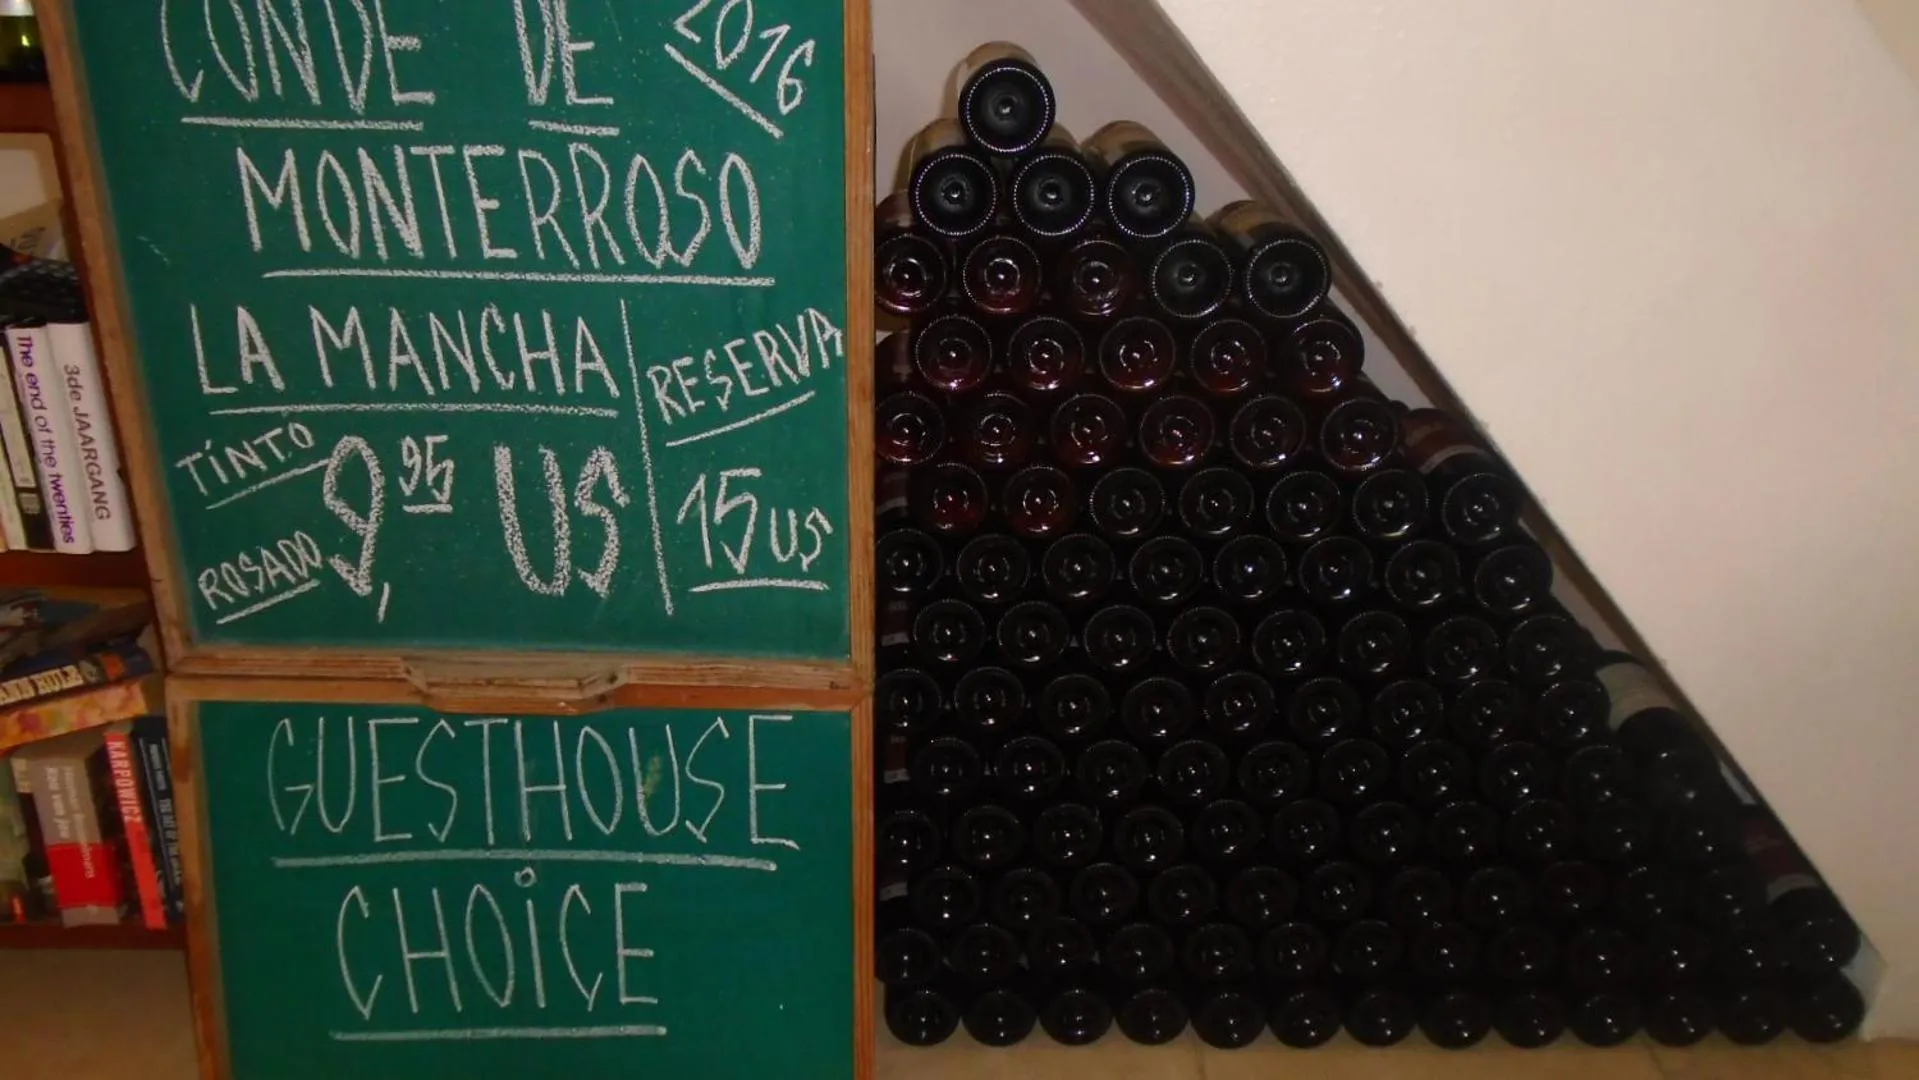 CONDE DE 2016
MONTERROSO
LA MANCHA
RESERVA
TINTO
9,95 US
ROSADO
15 US
GUESTHOUSE
CHOICE
The end of the twenties
3de JAARGANG
KARPOWICZ